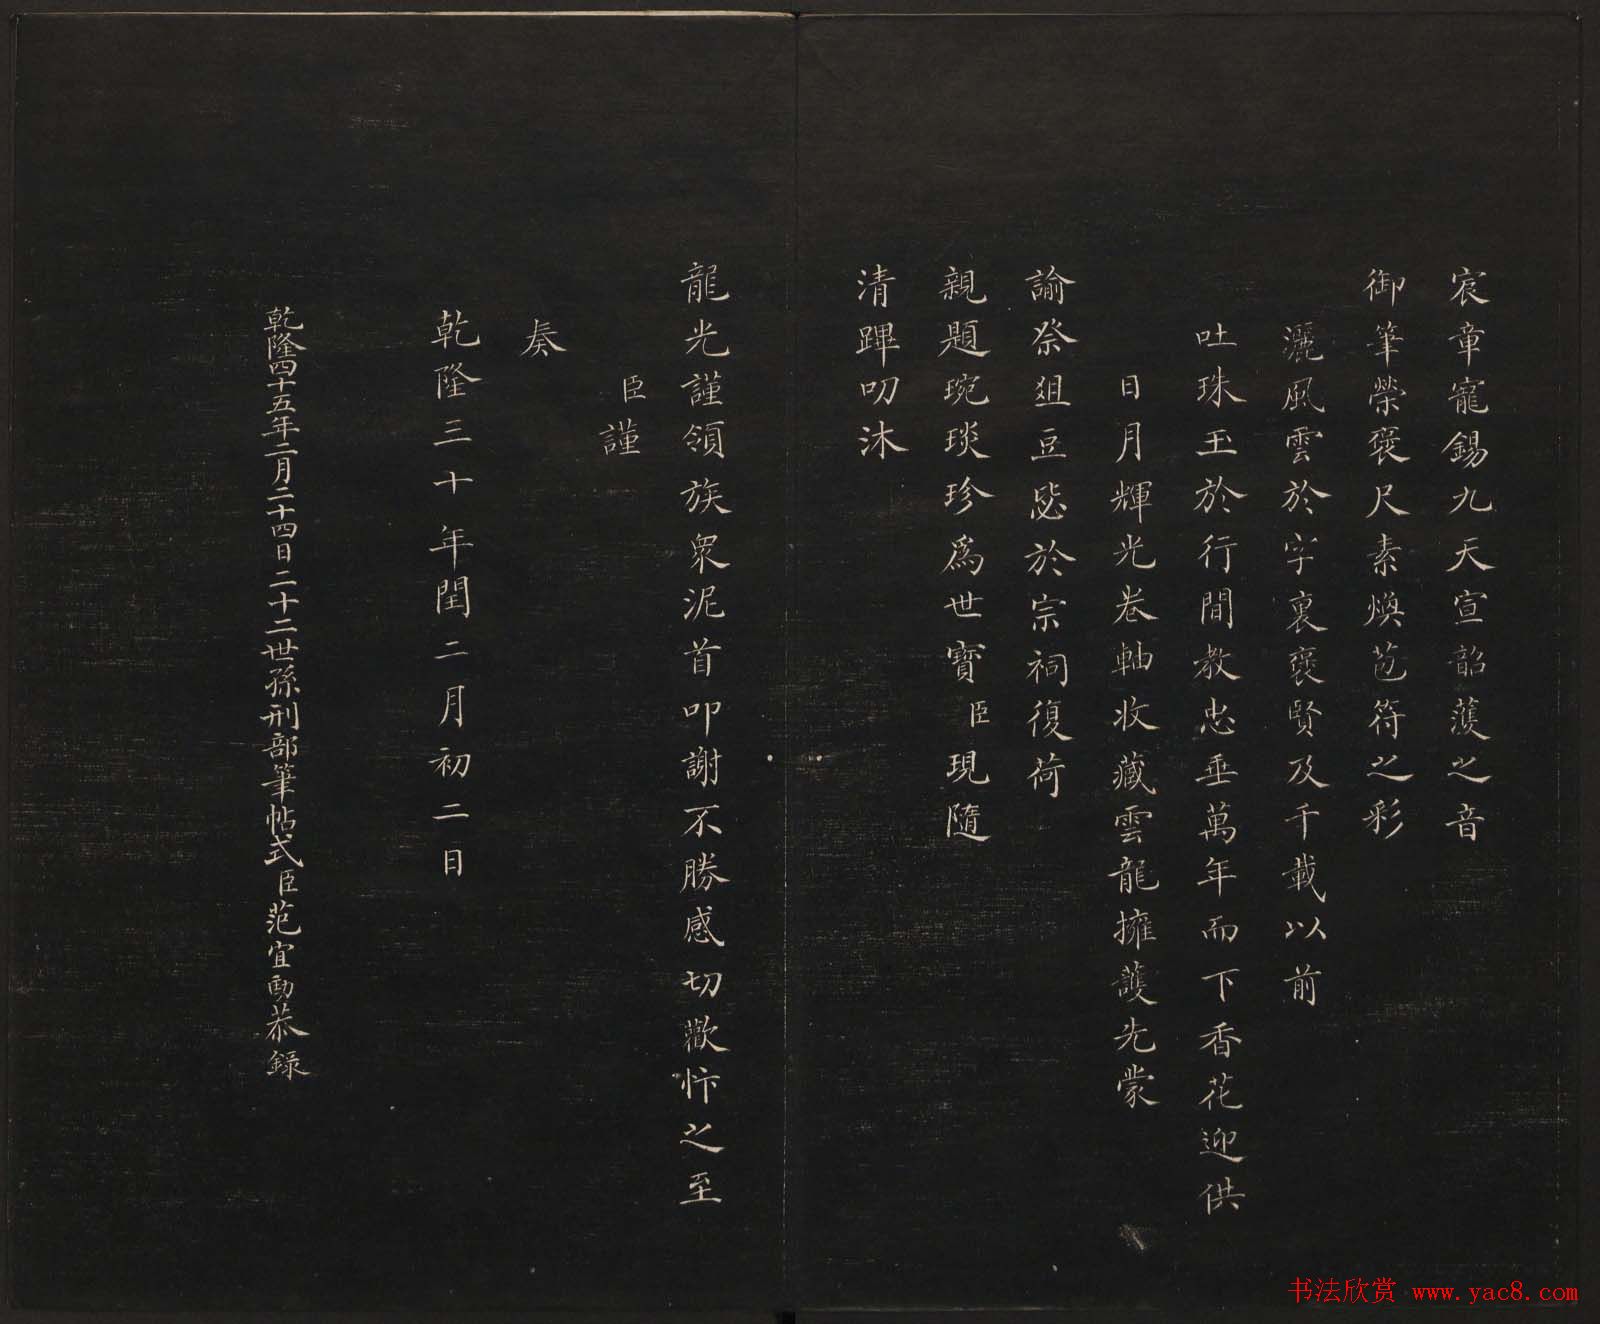 宸章寵錫九天宣韶濩之音
御筆榮褒尺素煥苞符之彩
灑風雲於字裏褒賢及千載以前
吐珠玉於行間教忠垂萬年而下香花迎供
日月輝光卷軸收藏雲龍擁護先蒙
諭祭俎豆毖於宗祠復荷
親題琬琰珍為世寶臣現隨
清蹕叨沐
龍光謹領族眾泥首叩謝不勝感切歡忭之至
臣謹
奏
乾隆三十年閏二月初二日
乾隆四十五年二月二十四日二十二世孫刑部筆帖式臣范宜勳恭錄
书法欣赏 www.yac8.com